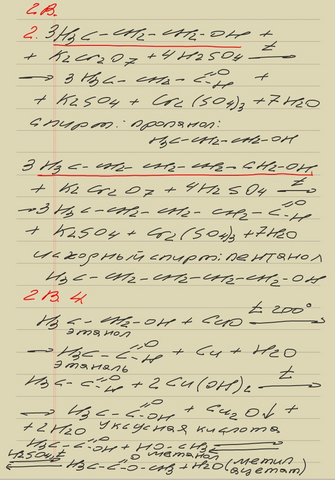 2В.
2. 3H₃C-CH₂-CH₂-OH +
+ K₂Cr₂O₇ + 4H₂SO₄ t→
→ 3H₃C-CH₂-C=O-H +
+ K₂SO₄ + Cr₂(SO₄)₃ + 7H₂O
спирт: пропанол:
H₃C-CH₂-CH₂-OH
3H₃C-CH₂-CH₂-CH₂-CH₂-OH
+ K₂Cr₂O₇ + 4H₂SO₄ t→
→3H₃C-CH₂-CH₂-CH₂-C=O-H
+ K₂SO₄ + Cr₂(SO₄)₃ + 7H₂O
исходный спирт: пентанол
H₃C-CH₂-CH₂-CH₂-CH₂-OH
2В. 4
H₃C-CH₂-OH + CuO t 200°→
этанол
→ H₃C-C=O-H + Cu + H₂O
этаналь
H₃C-C=O-H + 2Cu(OH)₂ t→
→ H₃C-C=O-OH + Cu₂O↓ +
+ 2H₂O уксусная кислота
H₃C-C=O-OH + HO-CH₃ ⇄
метанол
H₂SO₄,t H₃C-C=O-O-CH₃ + H₂O (метил
ацетат)